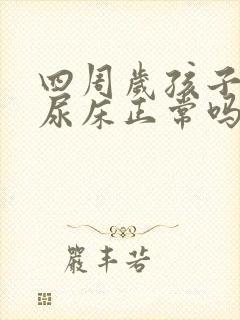 四周岁孩子
尿床正常吗
严丰若